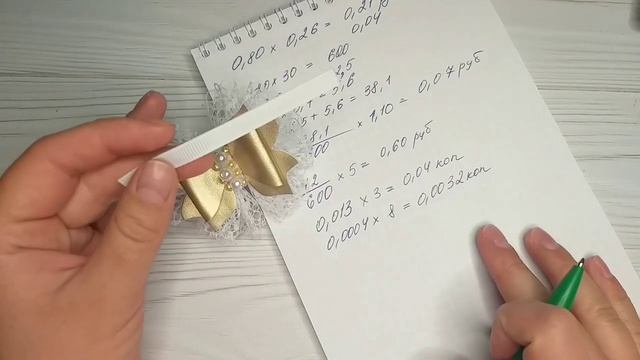 0,80 × 0,26 = 0,21 р
0,04
× 30 = 600
5,6
5 + 5,6 = 38,1
8,1 × 1,10 = 0,07 руб
600 × 5 = 0,60 руб
0,013 × 3 = 0,04 коп
0,0004 × 8 = 0,0032 коп